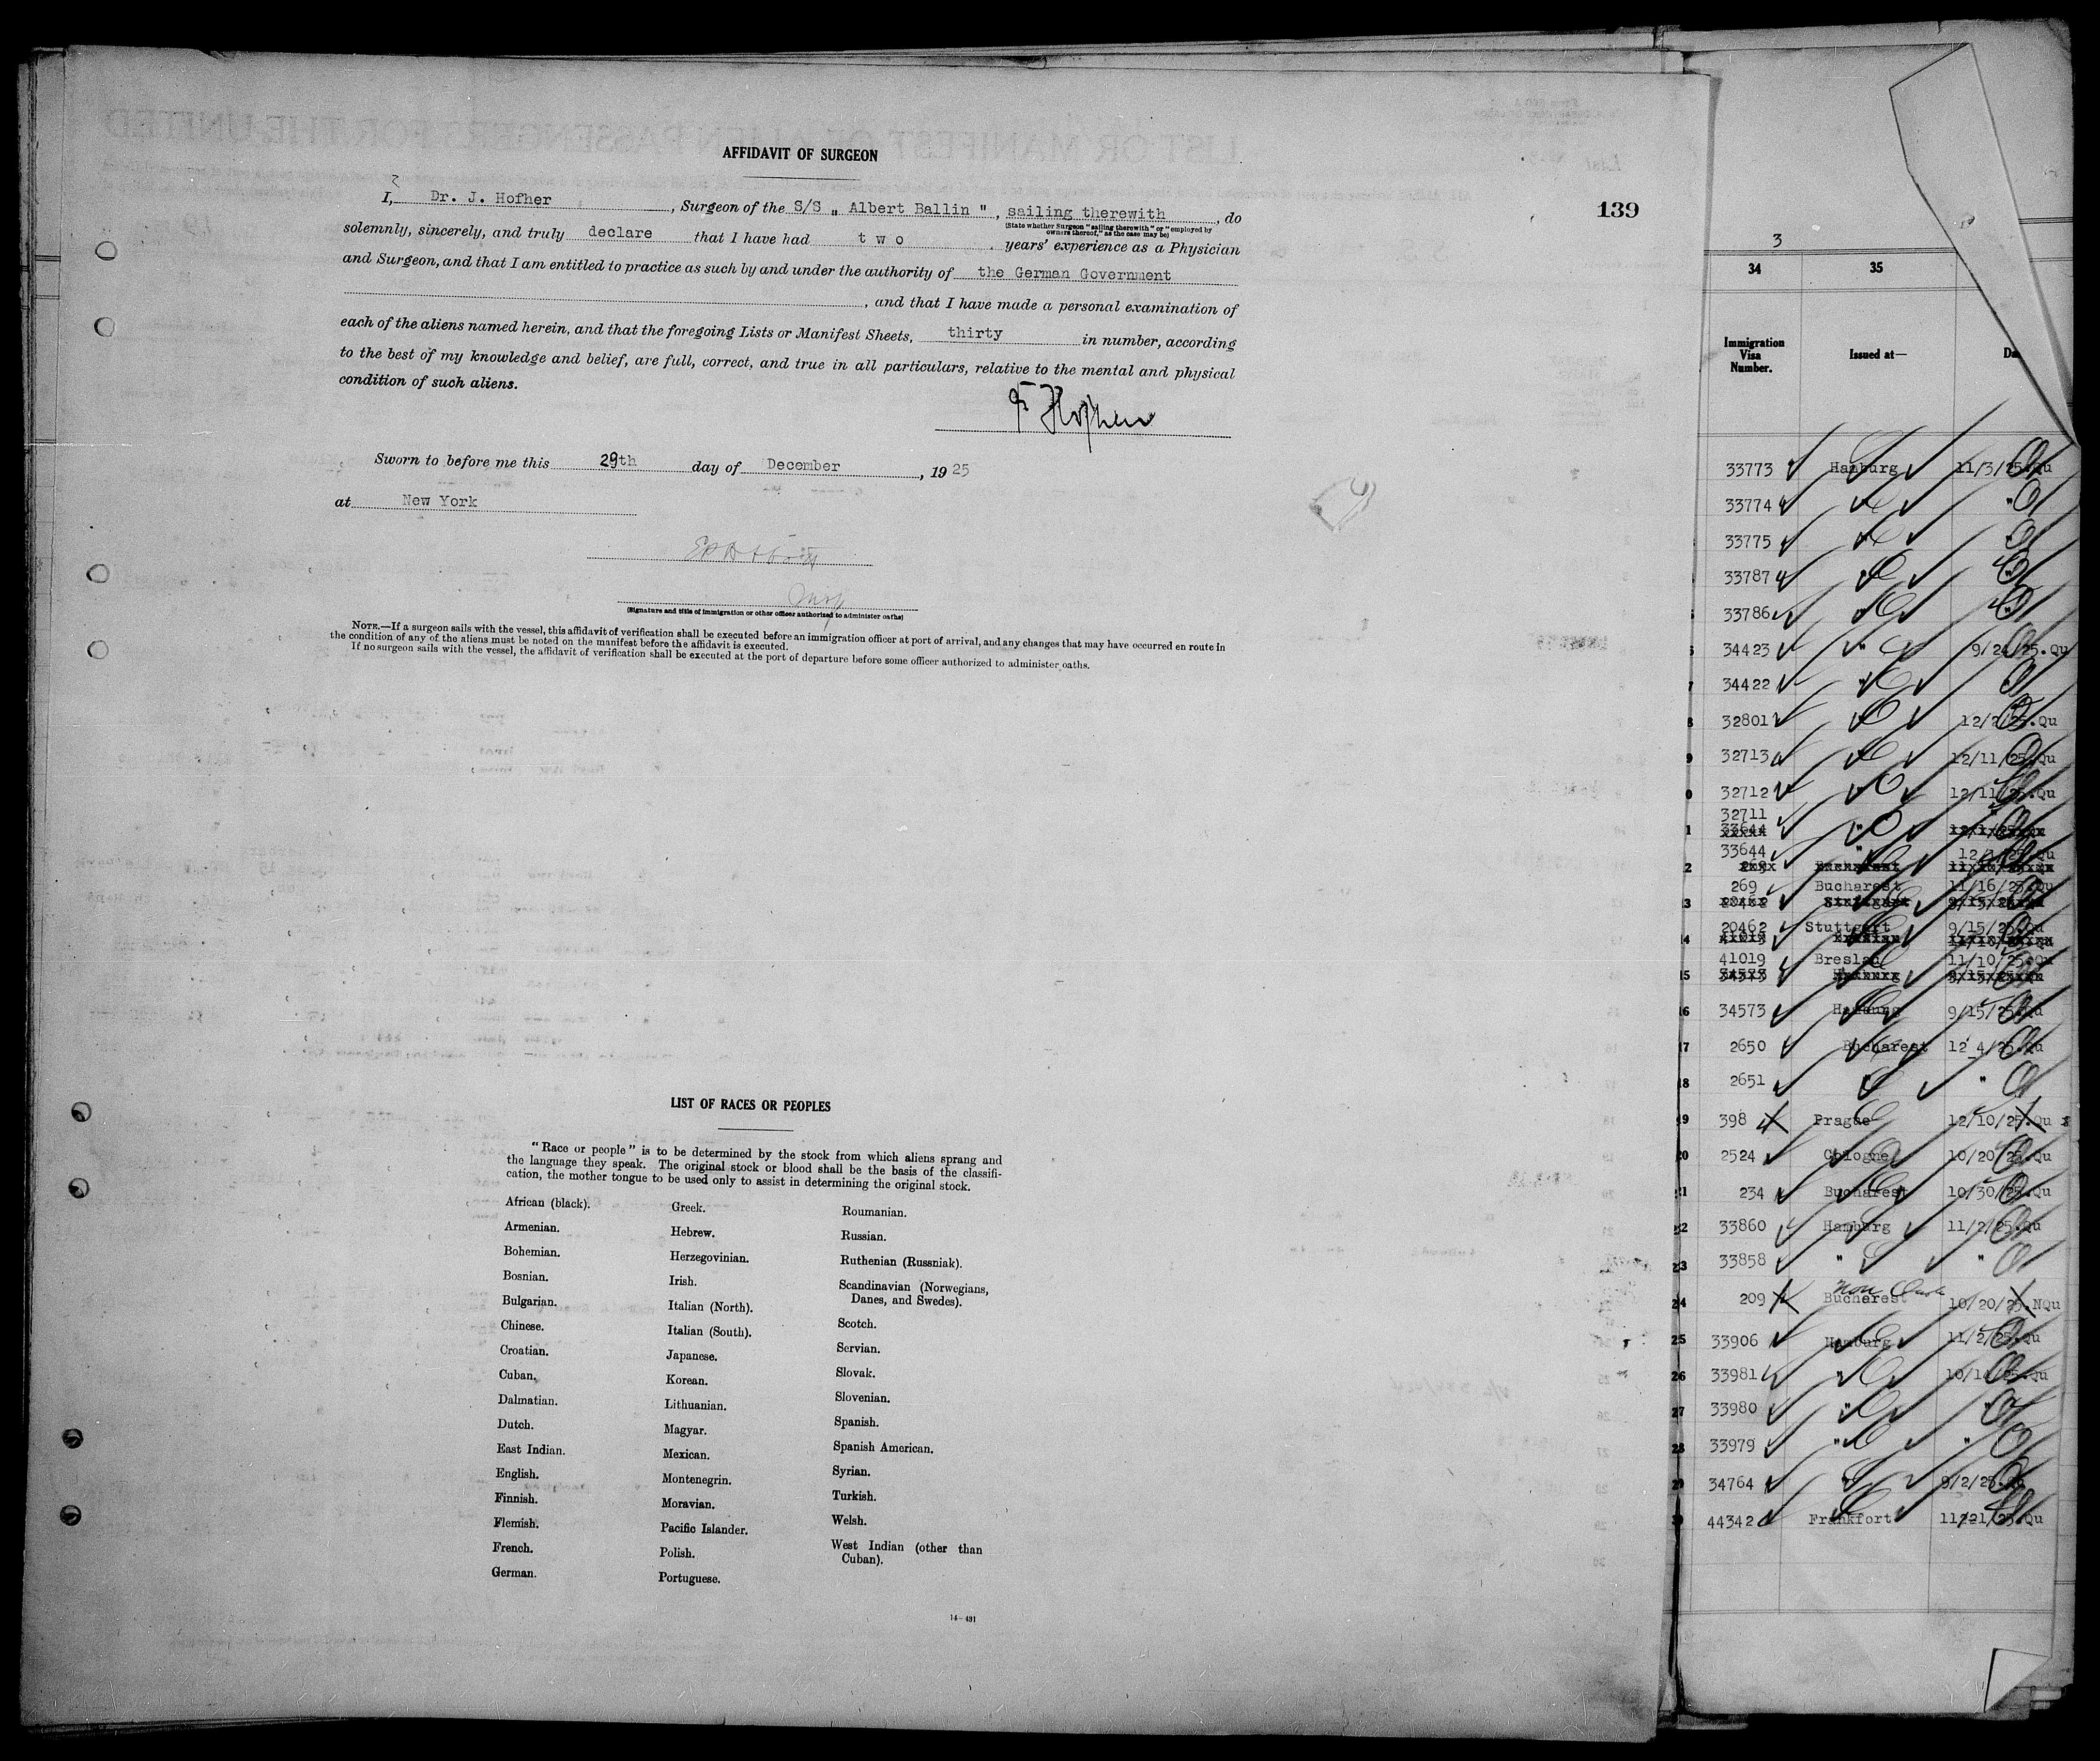 AFFIDAVIT OF SURGEON
I, Dr. J. Hofher, Surgeon of the S/S „ Albert Ballin ", sailing therewith, do
(State whether Surgeon "sailing therewith" or "employed by
owners thereof," as the case may be)
solemnly, sincerely, and truly declare that I have had two years' experience as a Physician
and Surgeon, and that I am entitled to practice as such by and under the authority of the German Government
, and that I have made a personal examination of
each of the aliens named herein, and that the foregoing Lists or Manifest Sheets, thirty in number, according
to the best of my knowledge and belief, are full, correct, and true in all particulars, relative to the mental and physical
condition of such aliens.
Hofher
Sworn to before me this 29th day of December, 1925
at New York
(Signature and title of immigration or other officer authorized to administer oaths)
NOTE.—If a surgeon sails with the vessel, this affidavit of verification shall be executed before an immigration officer at port of arrival, and any changes that may have occurred en route in
the condition of any of the aliens must be noted on the manifest before the affidavit is executed.
If no surgeon sails with the vessel, the affidavit of verification shall be executed at the port of departure before some officer authorized to administer oaths.
LIST OF RACES OR PEOPLES
"Race or people" is to be determined by the stock from which aliens sprang and
the language they speak. The original stock or blood shall be the basis of the classifi-
cation, the mother tongue to be used only to assist in determining the original stock.
African (black).
Armenian.
Bohemian.
Bosnian.
Bulgarian.
Chinese.
Croatian.
Cuban.
Dalmatian.
Dutch.
East Indian.
English.
Finnish.
Flemish.
French.
German.
Greek.
Hebrew.
Herzegovinian.
Irish.
Italian (North).
Italian (South).
Japanese.
Korean.
Lithuanian.
Magyar.
Mexican.
Montenegrin.
Moravian.
Pacific Islander.
Polish.
Portuguese.
Roumanian.
Russian.
Ruthenian (Russniak).
Scandinavian (Norwegians,
Danes, and Swedes).
Scotch.
Servian.
Slovak.
Slovenian.
Spanish.
Spanish American.
Syrian.
Turkish.
Welsh.
West Indian (other than
Cuban).
14—431
139
3
34 35
Immigration
Visa
Number.
Issued at—
33773 Hamburg 11/3/25.Qu
33774 " "
33775 "
33787 "
33786 "
6 34423 " 9/24/25.Qu
7 34422 " "
8 32801 " 12/2/25.Qu
9 32713 " 12/11/25.Qu
0 32712 " 12/11/25.Qu
32711
1 33644 "
33644 " 12/1/25.Qu
2 269 Bucharest
269 Bucharest 11/16/25.Qu
3 20462 Stuttgart 9/15/25
20462 Stuttgart 9/15/25.Qu
4 41019
41019 Breslau 11/10/25.Qu
15 34573 Hamburg 9/15/25.Qu
16 34573 Hamburg 9/15/25.Qu
17 2650 Bucharest 12_4/25.Qu
18 2651 " "
19 398 Prague 12/10/25.Qu
20 2524 Cologne 10/20/25.Qu
21 234 Bucharest 10/30/25.Qu
22 33860 Hamburg 11/2/25.Qu
23 33858 " "
Non Quota
24 209 Bucharest 10/20/25.NQu
25 33906 Hamburg 11/2/25.Qu
26 33981 " 10/14/25.Qu
27 33980 " "
28 33979 " "
29 34764 " 9/2/25.Qu
30 44342 Frankfort 11/21/25.Qu